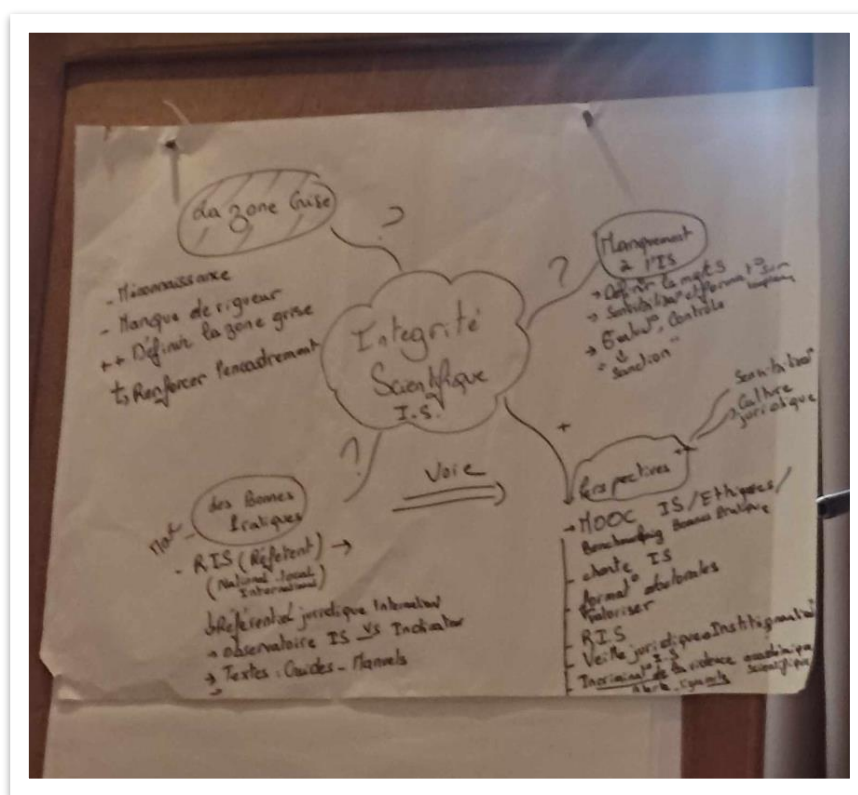 La zone Grise
?
- Méconnaissance
- Manque de rigueur
++ Définir la zone grise
Renforcer l'encadrement
Manquement
à l'IS
?
→ Définir
→ Sensibilisat° et format° sur
→ Evaluat°, Contrôle
"Sanction"
Integrité
Scientifique
I.S.
?
Voie
+
des Bonnes
Pratiques
- RIS (Référent) →
(National-local
International)
Référentiel juridique International
→ Observatoire IS vs Indicator
→ Textes : Guides - Manuels
Perspectives
++
Sensibilisat°
Culture
juridique
→ MOOC IS/Ethiques/
Benchmarking Bonnes Pratique
- charte IS
- format° doctorales
- Valoriser
- RIS
- Veille juridique Institionnalisé
I.S
- Incriminat° de la violence académique
scientifique